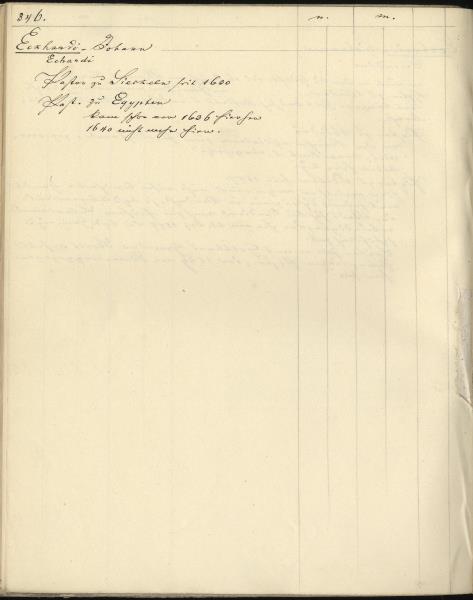 346. n. m.
Eckhardi - Johann
Echardi
Pastor zu Sieckeln seit 1600
Past. zu Egypten
kam schon vor 1636 hierher
1640 nicht mehr hier.